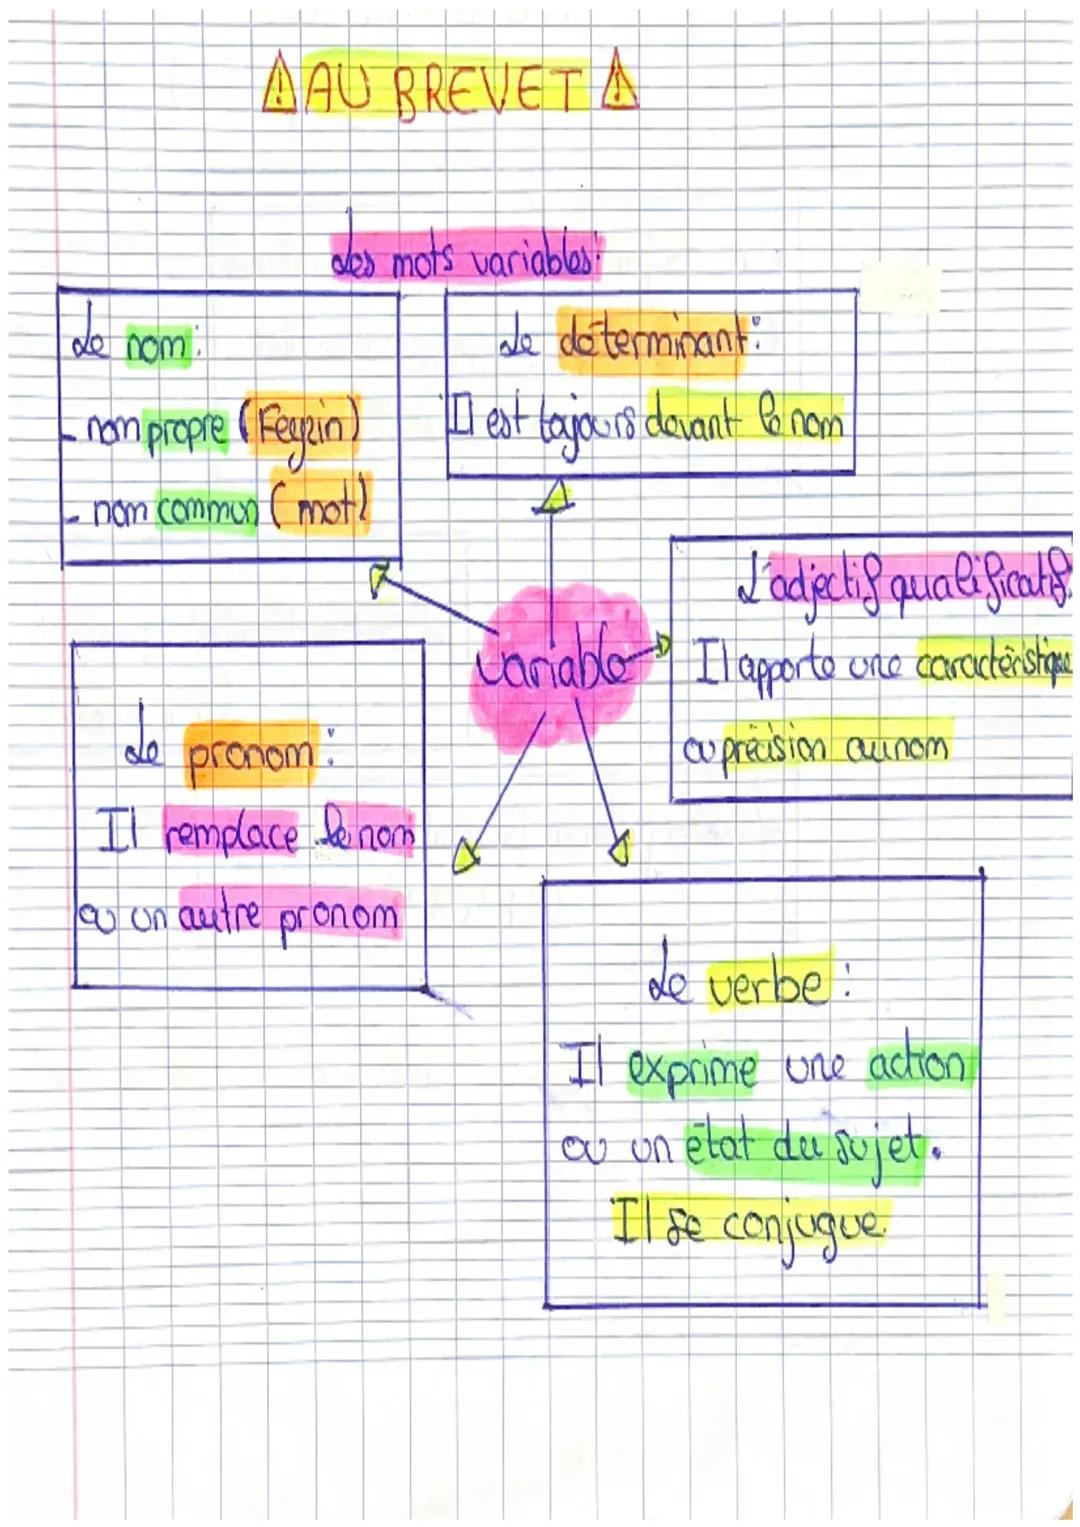 ⚠ AU BREVET ⚠
Les mots variables:
Le nom:
- nom propre (Feyzin)
- nom commun (mot)
Le déterminant:
Il est toujours devant le nom
L'adjectif qualificatif:
Il apporte une caractéristique
ou précision au nom
variable
Le pronom:
Il remplace le nom
ou un autre pronom
Le verbe:
Il exprime une action
ou un état du sujet.
Il se conjugue.